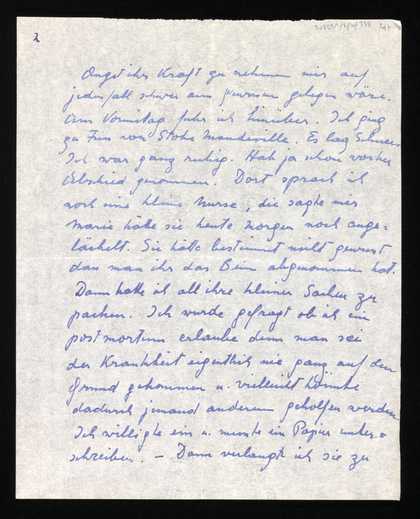 2
Angst ihr Kraft zu nehmen mir auf
jeden/all schwer am gelegen wäre.
Am Vormittag fuhr ich hinüber. Ich ging
zu Fuss von Stoke Mandeville. Es lag Schnee
Ich war ganz ruhig. Hab ja schon vorher
Abschied genommen. Dort sprach ich
noch eine kleine Nurse, die sagte mir
Marie hätte sie heute morgen noch ange-
lächelt. Sie hätte bestimmt nicht gewusst
dass man ihr das Bein abgenommen hat.
Dann hatte ich all ihre kleinen Sachen zu
packen. Ich wurde gefragt ob ich ein
post mortem erlaube denn man sei
der Krankheit eigentlich nie ganz auf den
Grund gekommen u. vielleicht könnte
dadurch jemand anderem geholfen werden
Ich willigte ein u. musste ein Papier unter-
schreiben. – Dann verlangte ich sie zu